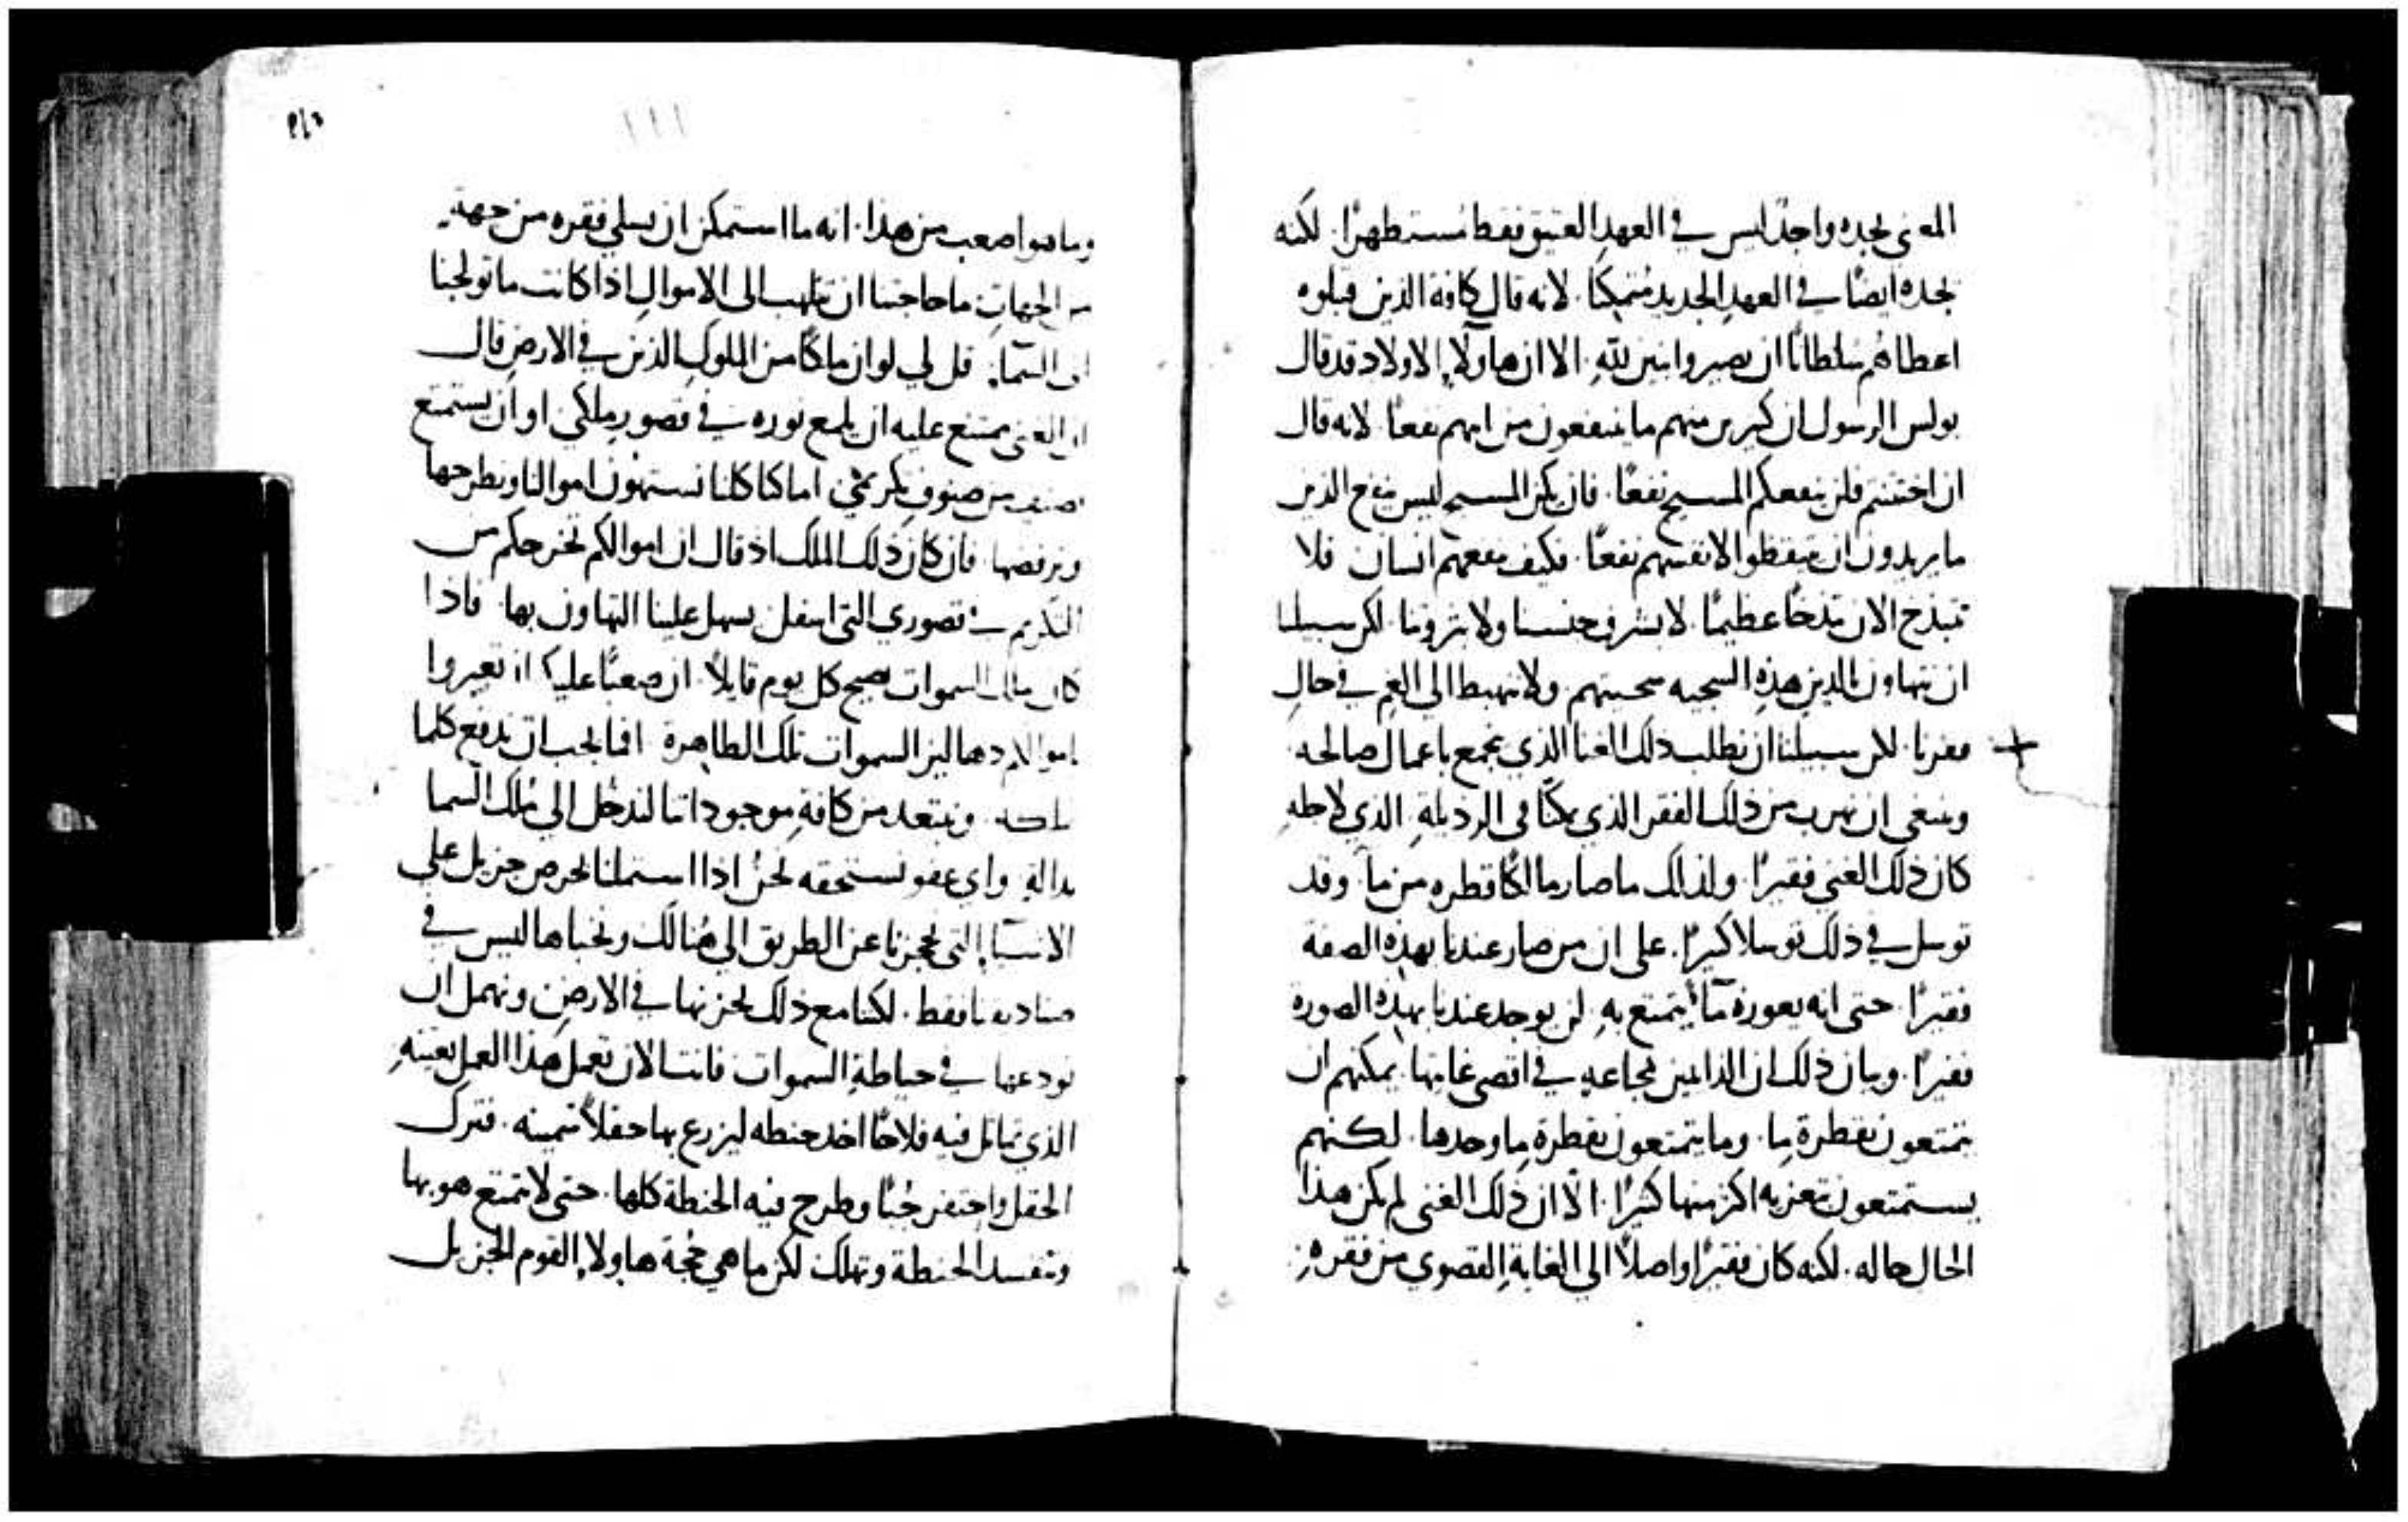 المعنى نجده واحدًا ليس في العهد العتيق فقط مستظهرًا. لكنه
نجده ايضًا في العهد الجديد متمكنًا. لانه قال كافة الذين قبلوه
اعطاهم سلطانًا ان يصيروا بنين لله. الا ان هاولاء الاولاد قد قال
بولس الرسول ان كثيرين منهم ما ينتفعون من ابيهم نفعًا. لانه قال
ان اختتنتم فلن ينفعكم المسيح نفعًا. فان يكن المسيح ليس ينفع الذين
ما يريدون ان يتيقظوا لانفسهم نفعًا. فكيف ينفعهم انسان فلا
نتبذخ الان بذخًا عظيمًا. لا بشرف جنسنا ولا بثروتنا. لكن سبيلنا
ان نتهاون بالذين هذه السجيه سجيتهم. ولا نهبط الى الغم في حال
فقرنا. لكن سبيلنا ان نطلب ذلك الغنا الذي يجمع باعمال صالحه.
وينبغي ان نهرب من ذلك الفقر الذي يكنا في الرذيلة. الذي لاجله
كان ذلك الغني فقيرًا. ولذلك ما صار مالكًا قطره من ماء. وقد
توسل في ذلك توسلا كثيرًا. على ان من صار عندنا بهذه الصفة
فقيرًا. حتى انه يعوزه ماء يتمتع به. لن يوجد عندنا بهذه الصورة
فقيرًا. وبيان ذلك ان الذايبين بمجاعه في اقصى غايتها. يمكنهم ان
يتمتعون بقطرة ما. وما يتمتعون بقطرة ما وحدها. لكنهم
يستمتعون بتعزيه اكثر منها كثيرًا. الا ان ذلك الغني لم يكن هذا
الحال حاله. لكنه كان فقيرًا واصلاً الى الغاية القصوى من فقره.
٢١٥
١١١
وما هو اصعب من هذا. انه ما استمكن ان يسلي فقره من جهة
من الجهات ما حاجتنا ان نلهب الى الاموال اذا كانت ما تولجنا
الى السماء. قل لي لو ان ملكًا من الملوك الذين في الارض قال
ان الغني ممتنع عليه ان يلمع نوره في قصور ملكي او ان يستمتع
بصنف من صنوف تكرمتي اما كنا كلنا نستهون اموالنا ونطرحها
ونرفضها. فان كان ذلك الملك اذ قال ان اموالكم تخرجكم من
التكريم في قصوري التي اسفل يسهل علينا التهاون بها. فاذا
كان ملك السموات يصيح كل يوم قايلاً. ان صعبًا عليكم ان تعبروا
باموالكم دهاليز السموات تلك الطاهرة افما يجب ان ندفع كلما
نملكه. ونبتعد من كافة موجوداتنا لندخل الى ملك السما
بدالة. واي عفو نستحقه نحن اذا اشتملنا بحرص جزيل على
الاشياء التى تحجزنا عن الطريق الى هنالك ونخباها ليس في
صناديقنا فقط. لكنا مع ذلك نخزنها في الارض ونهمل ان
نودعها في حياطة السموات فانت الان تعمل هذا العمل بعينه.
الذي تماثل فيه فلاحًا اخذ حنطه ليزرع بها حقلاً سمينه. فترك
الحقل واحتفر جُبًا وطرح فيه الحنطة كلها. حتى لا يتمتع هو بها
وتفسد الحنطة وتهلك لكن ما هي حجة هاولاء القوم الجزيل